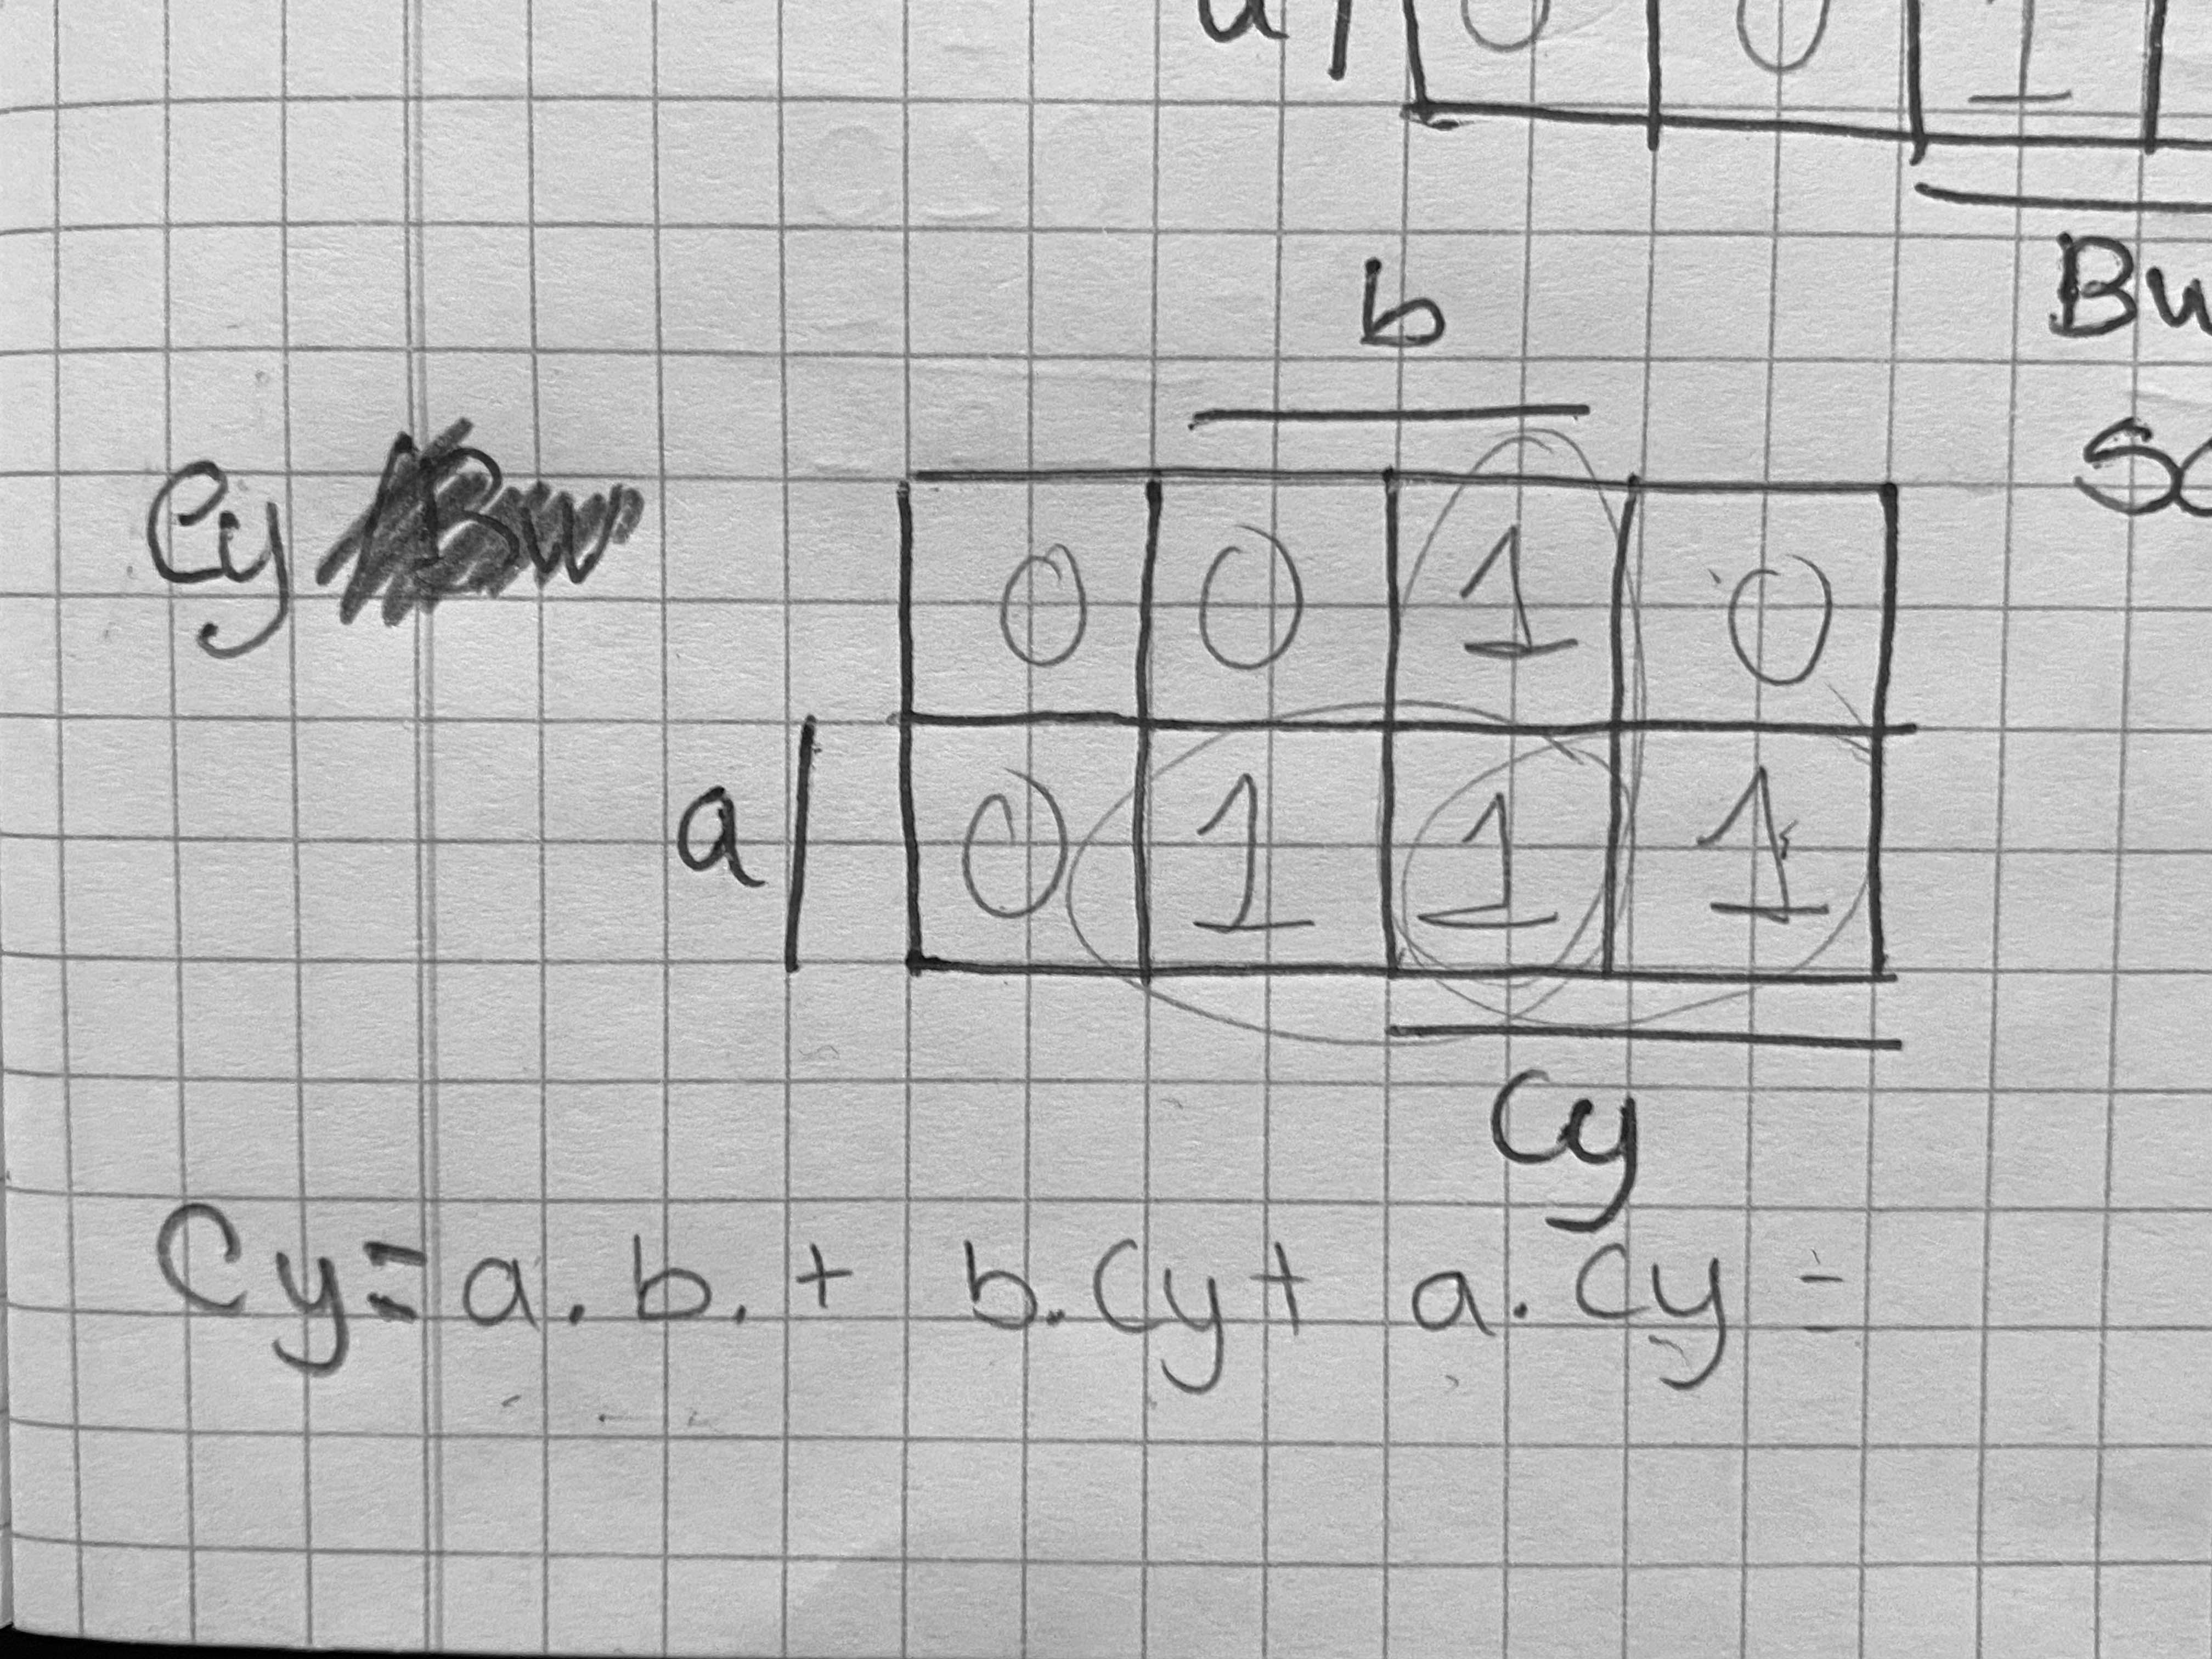 a 0 0 1
Bw
b
Cy
0 0 1 0
a 0 1 1 1
Cy
Cy = a . b . + b . Cy + a . Cy =